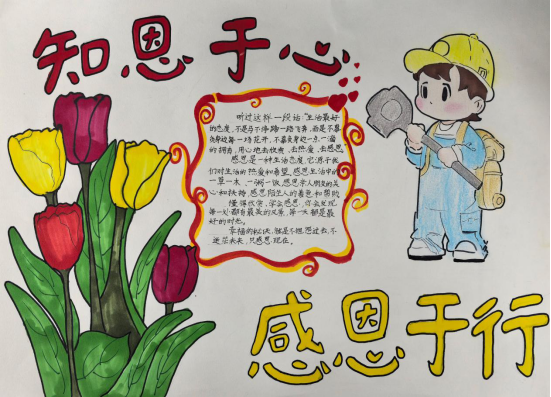 知恩于心
听过这样一段话:"生活最好
的态度,不是马不停蹄一路飞奔,而是不辜
负身边每一场花开,不辜负身边一点一滴
的拥有,用心地去欣赏,去热爱,去感恩
感恩是一种生活态度,它源于我
们对生活的热爱和希望,感恩生活中的
一草一木,一粥一饭,感恩亲人朋友的关
心和扶持,感恩陌生人的善意和帮助
懂得欣赏,学会感恩,你会发现,
每一刻都有最美的风景,每一天都是最
好的时光。
幸福的秘诀,就是不怨恨过去,不
迷茫未来,只感恩现在。
感恩于行